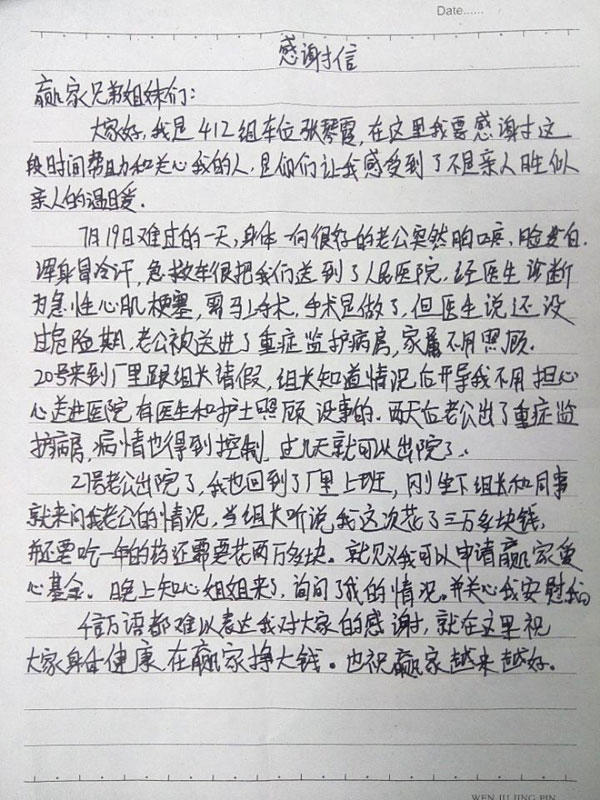 Date......
感谢信
赢家兄弟姐妹们：
大家好，我是412组车位张琴霞，在这里我要感谢这
段时间帮助和关心我的人，是他们让我感受到了不是亲人胜似
亲人的温暖。
7月19日难过的一天，身体一向很好的老公突然胸痛、脸发白、
浑身冒冷汗，急救车很把我们送到了人民医院，经医生诊断
为急性心肌梗塞，需马上手术，手术是做了，但医生说还没
过危险期，老公被送进了重症监护病房，家属不用照顾。
20号来到厂里跟组长请假，组长知道情况后开导我不用担心
心送进医院有医生和护士照顾没事的。两天后老公出了重症监
护病房，病情也得到控制，过几天就可以出院了。
27号老公出院了，我也回到了厂里上班，刚坐下组长和同事
就来问我老公的情况，当组长听说我这次花了三万多块钱，
并还要吃一年的药还需要花两万多块。就建议我可以申请赢家爱
心基金。晚上知心姐姐来了，询问了我的情况。并关心我安慰我
千言万语都难以表达我对大家的感谢，就在这里祝
大家身体健康在赢家挣大钱。也祝赢家越来越好。
WEN JU JING PIN